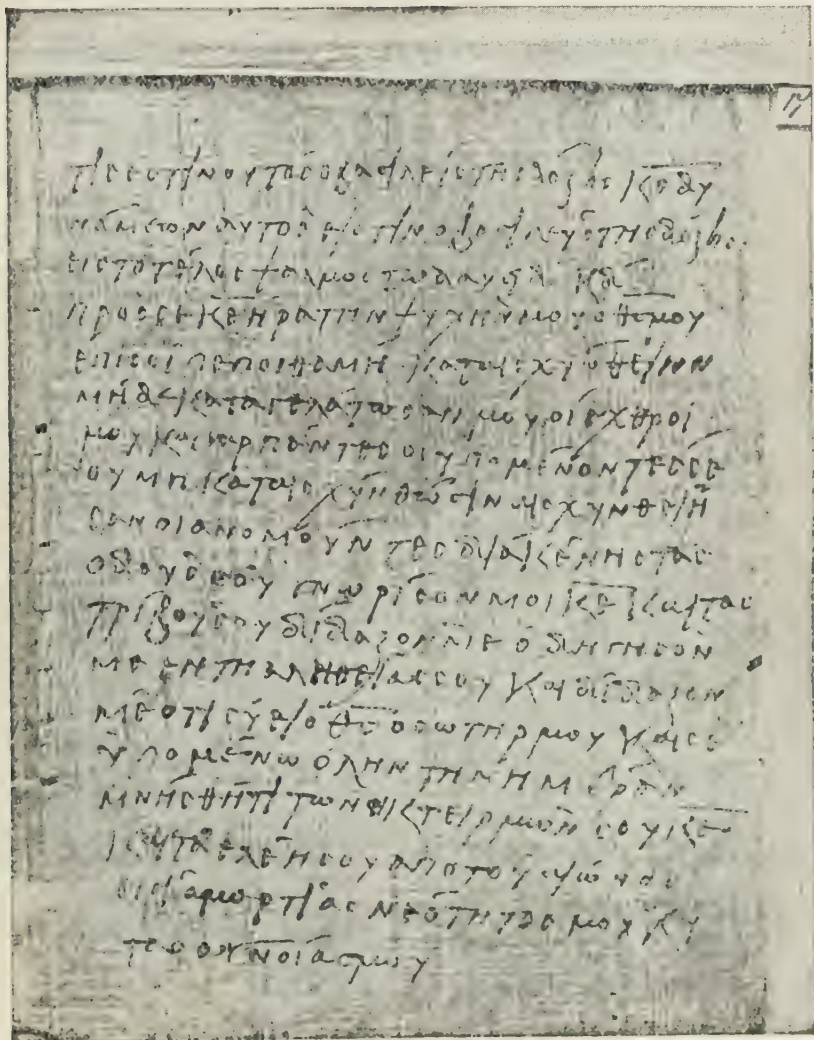 τίς ἐστιν οὗτος ὁ βασιλεις τῆς δόξης κς ὁ δυ
νάμεων αὐτὸς ἐστιν ὁ βασιλευς τῆς δόξης
εις τὸ τέλος ψαλμος τῶ δαυϊδ κδ
πρὸς σὲ κε ἦρα την ψυχην μου ὁ θς μου
ἐπι σοὶ πέποιθα μὴ καταισχυνθείην
μηδε καταγελάτωσαν μου οἱ εχθροί
μου και γαρ πάντες οι υπομένοντές σε
οὐ μη καταισχυνθῶσιν αισχυνθείη
σαν οι ανομοῦντες διακένης τας
οδούς σου γνώρισόν μοι κε και τας
τρίβους σου δίδαξόν με ὁδήγησὸν
με ἐν τη αληθεία σου και δίδαξον
με ὅτι σύ ει ὁ θς ὁ σωτήρ μου και σὲ
ὑπομένω ὅλην την ημέραν
μνήσθητι των οικτειρμῶν σου κε
και τὰ ελέη σου απο τοῦ αιῶνος
εισι ἁμαρτίας νεότητος μου και